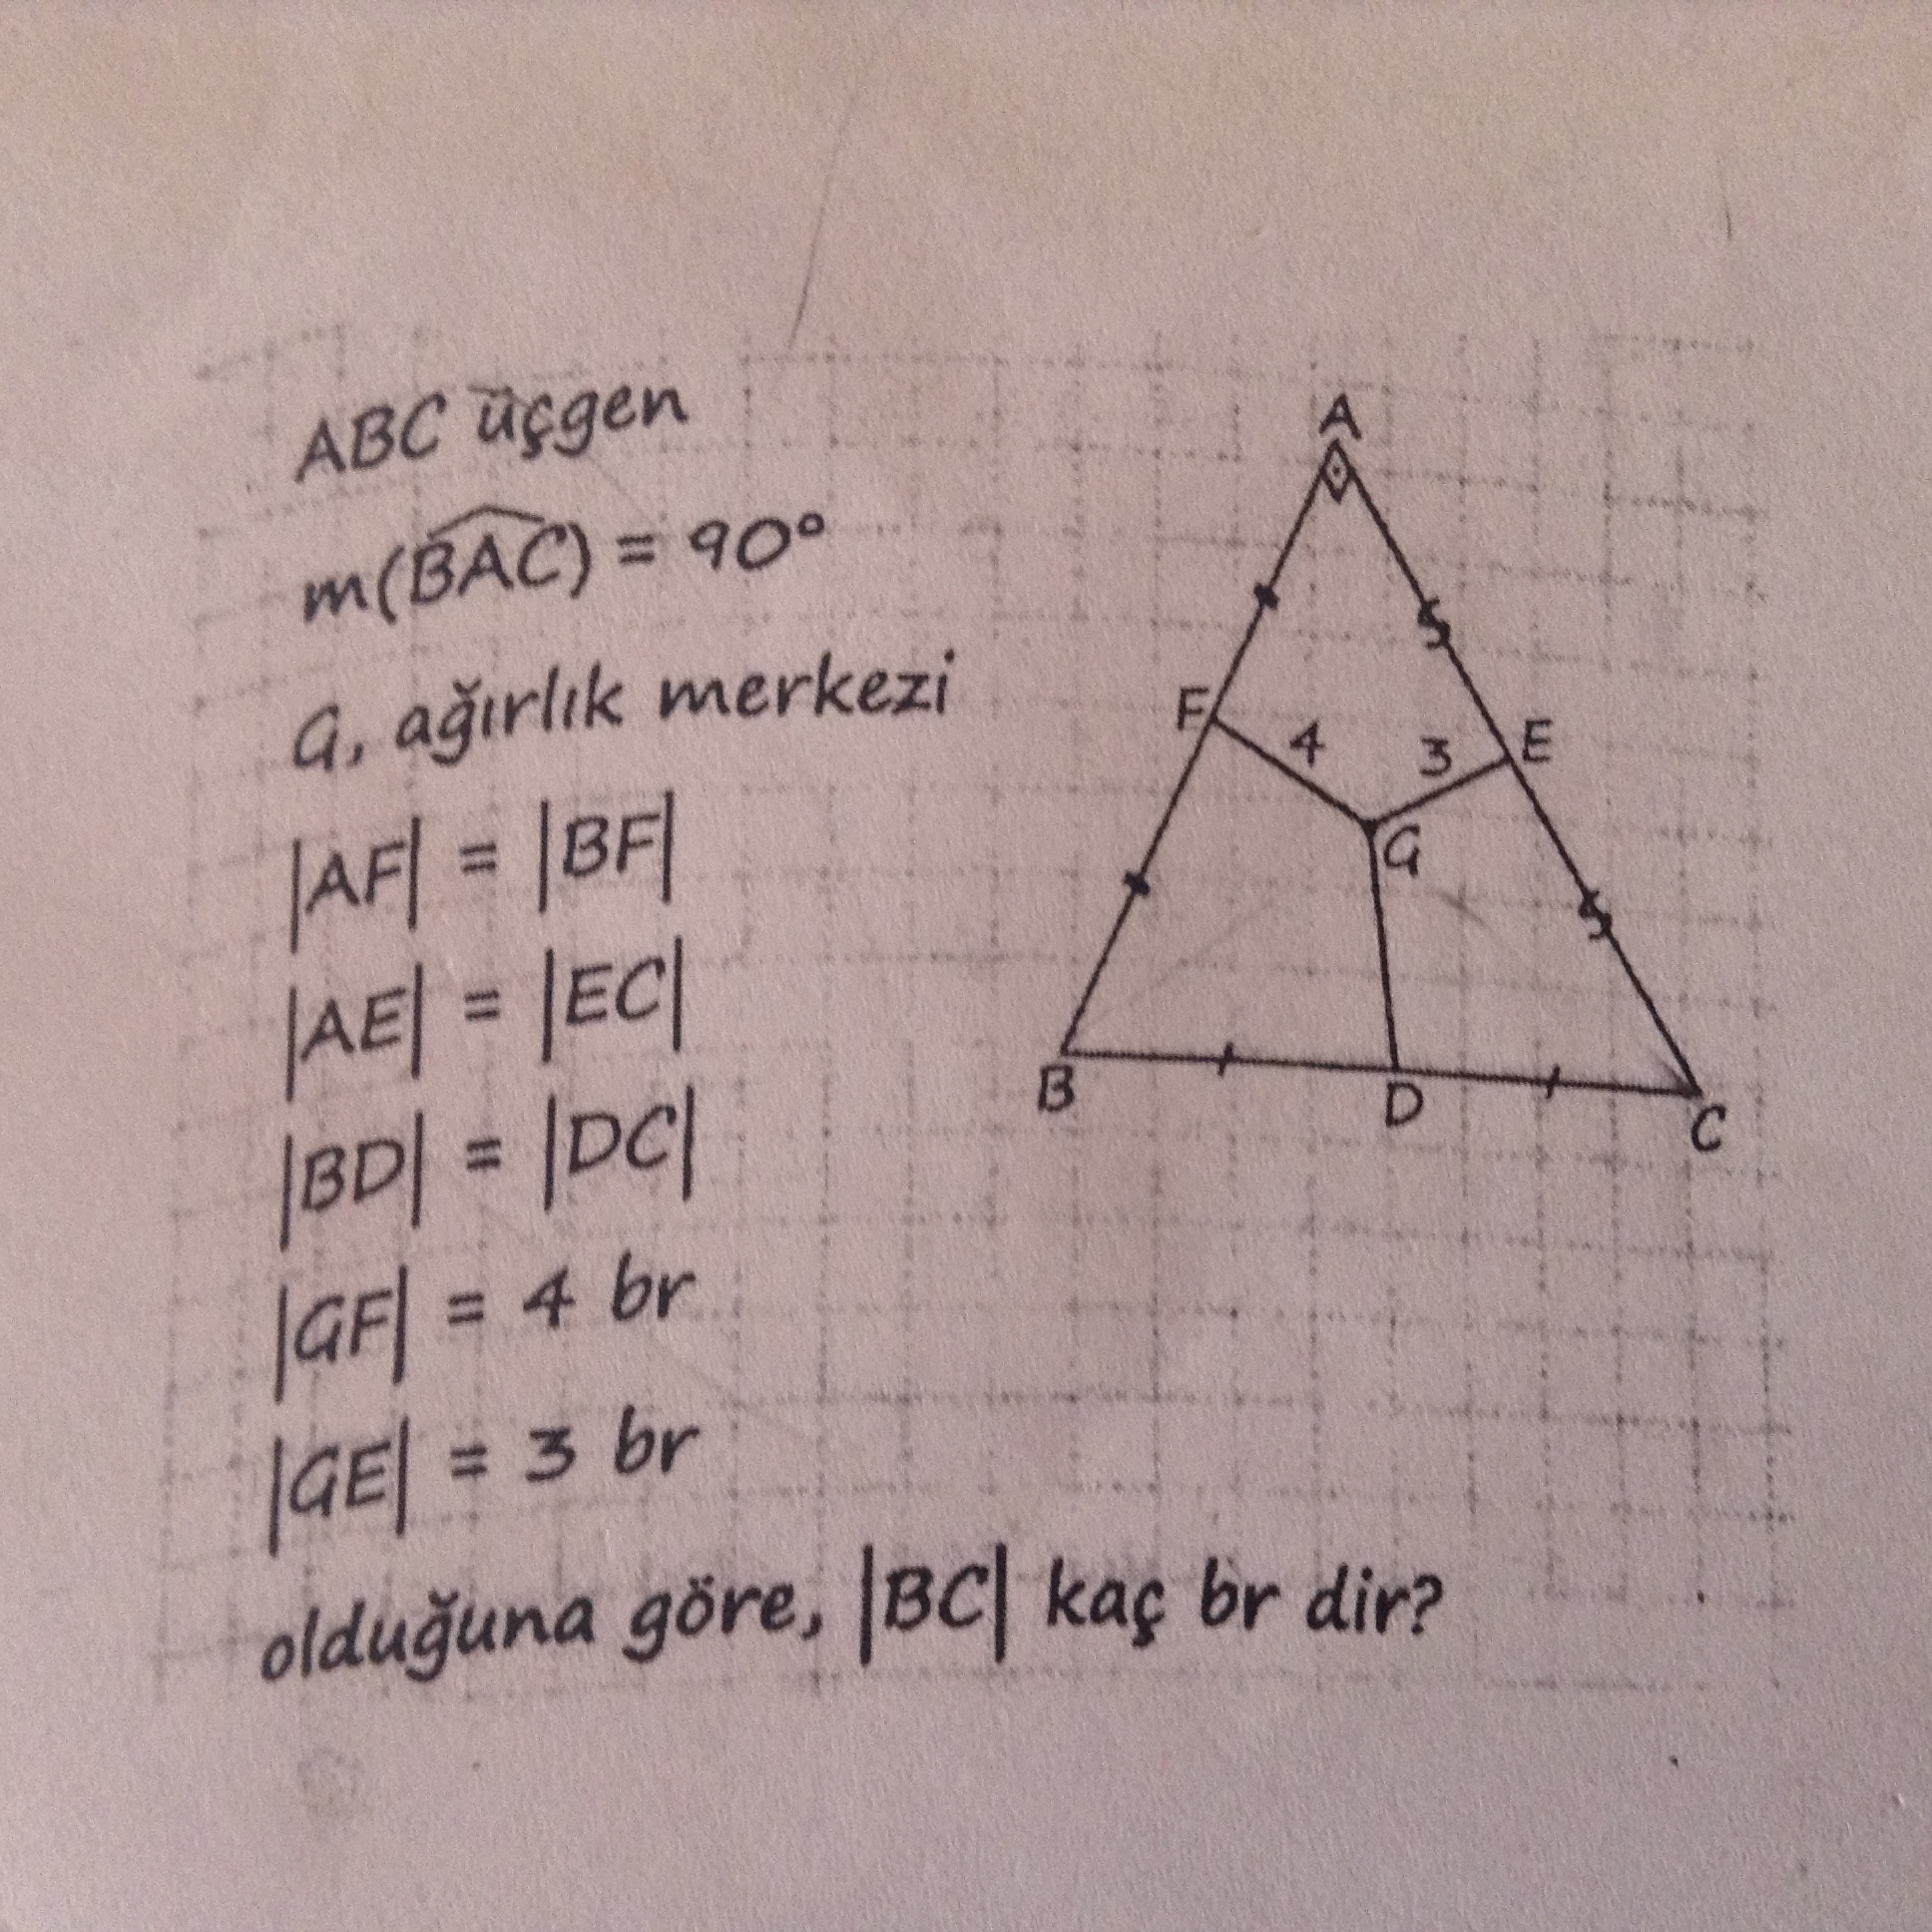 ABC üçgen
m(BAC) = 90°
G, ağırlık merkezi
|AF| = |BF|
|AE| = |EC|
|BD| = |DC|
|GF| = 4 br
|GE| = 3 br
olduğuna göre, |BC| kaç br dir?
A
F 4 3 E
G
B D C